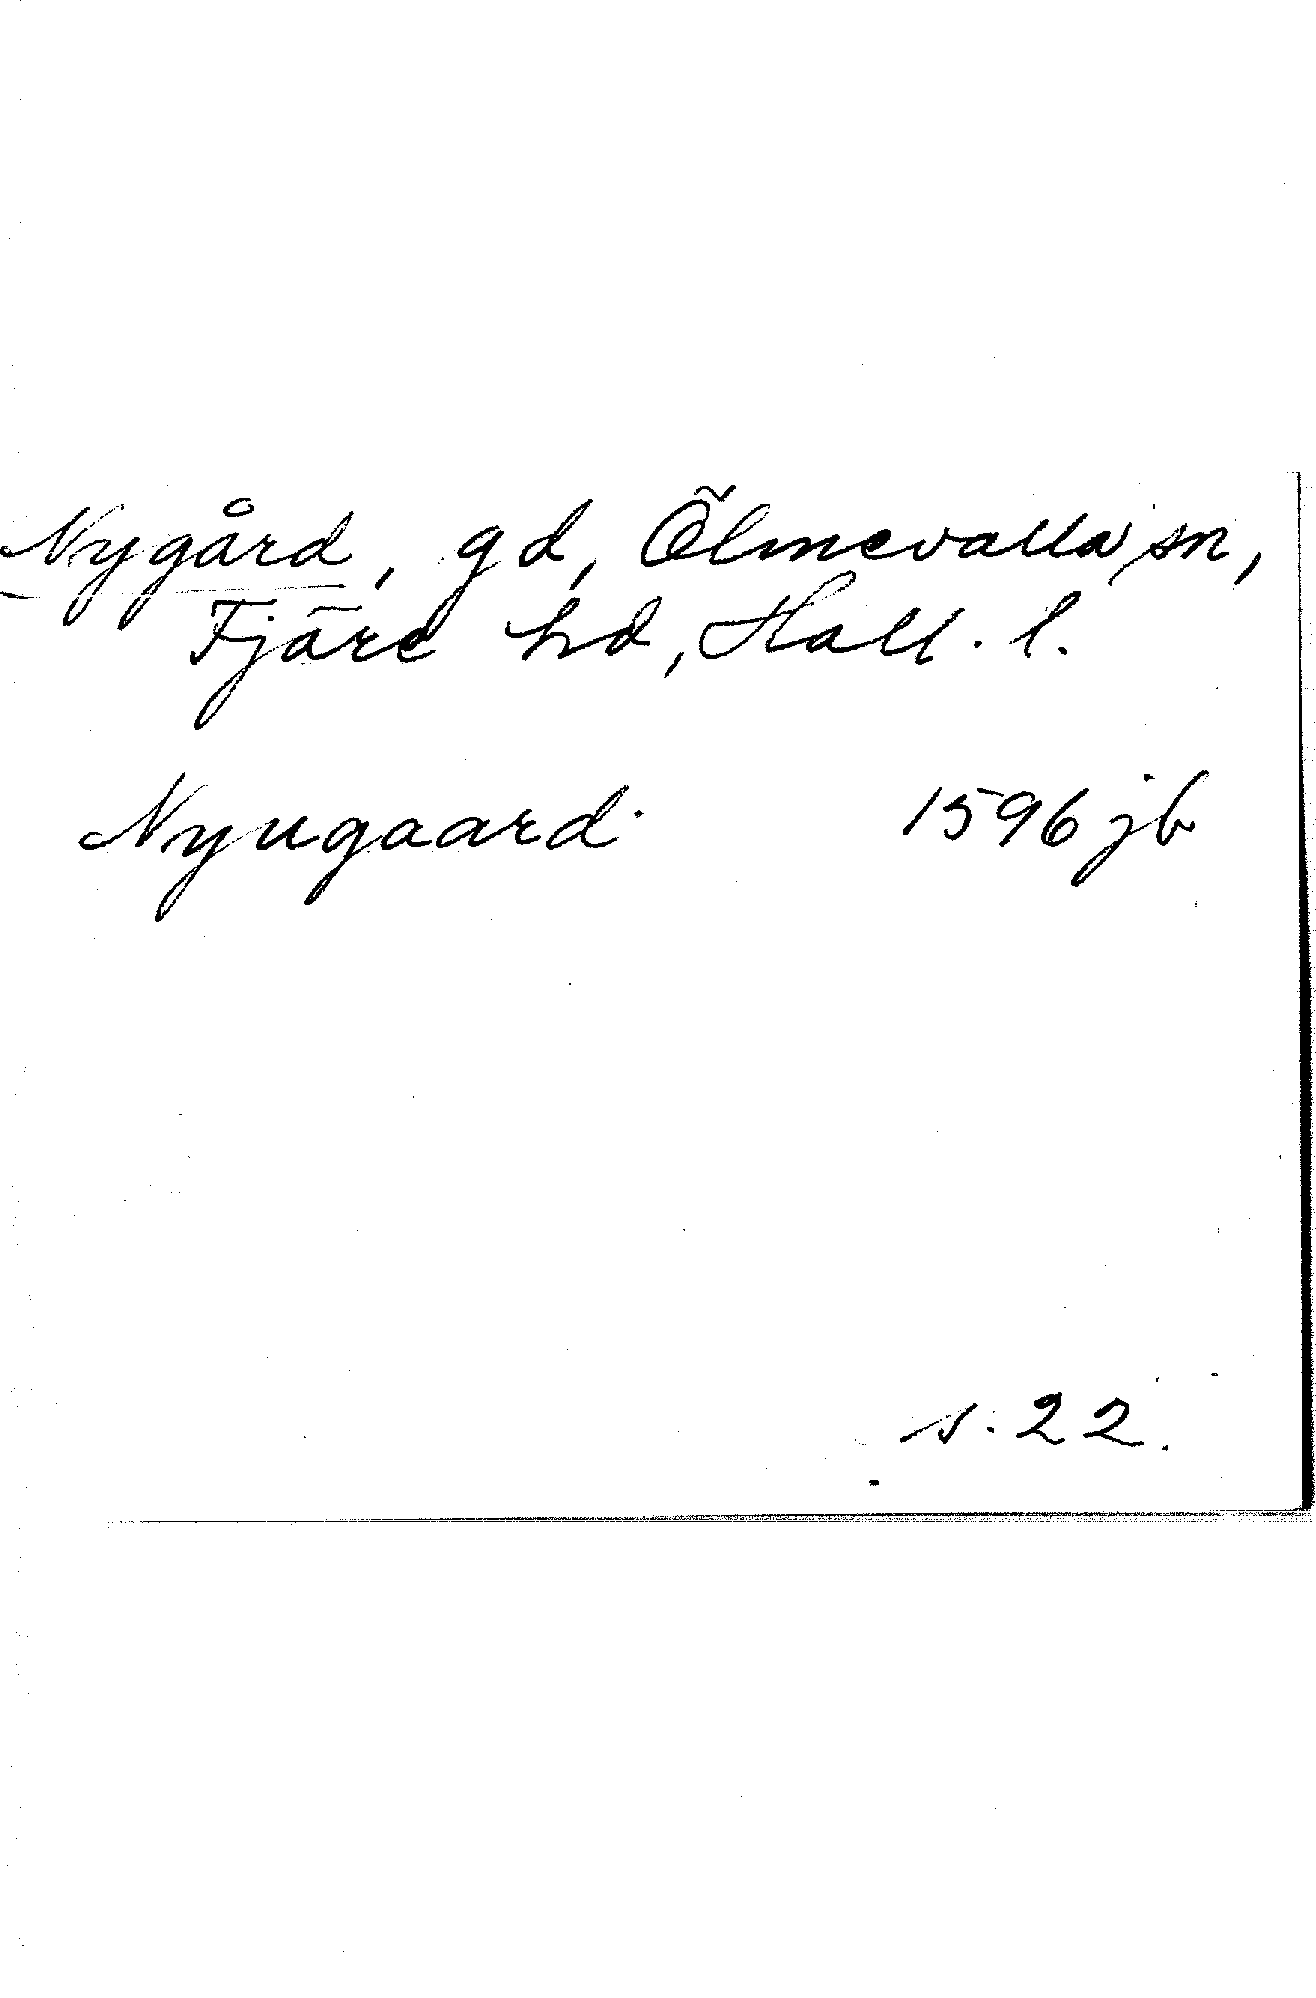 Nygård, gd, Ölmevalla sn,
Fjäre hd, Hall. l.
Nyugaard 1596 jb
s. 22.